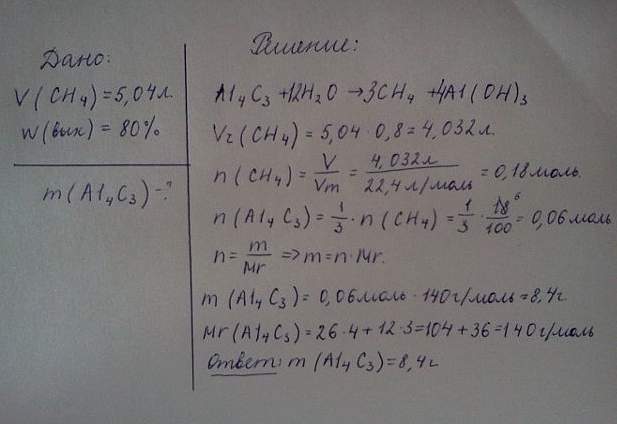 Дано:
V(CH₄)=5,04л.
w(вых)=80%
m(Al₄C₃)-?
Решение:
Al₄C₃+12H₂O→3CH₄+4Al(OH)₃
Vг(CH₄)=5,04·0,8=4,032л.
n(CH₄)=V/Vm=4,032л/22,4л/моль=0,18моль.
n(Al₄C₃)=1/3·n(CH₄)=1/3·18/100 6=0,06моль
n=m/Mr=>m=n·Mr.
m(Al₄C₃)=0,06моль·140г/моль=8,4г.
Mr(Al₄C₃)=26·4+12·3=104+36=140г/моль
Ответ: m(Al₄C₃)=8,4г